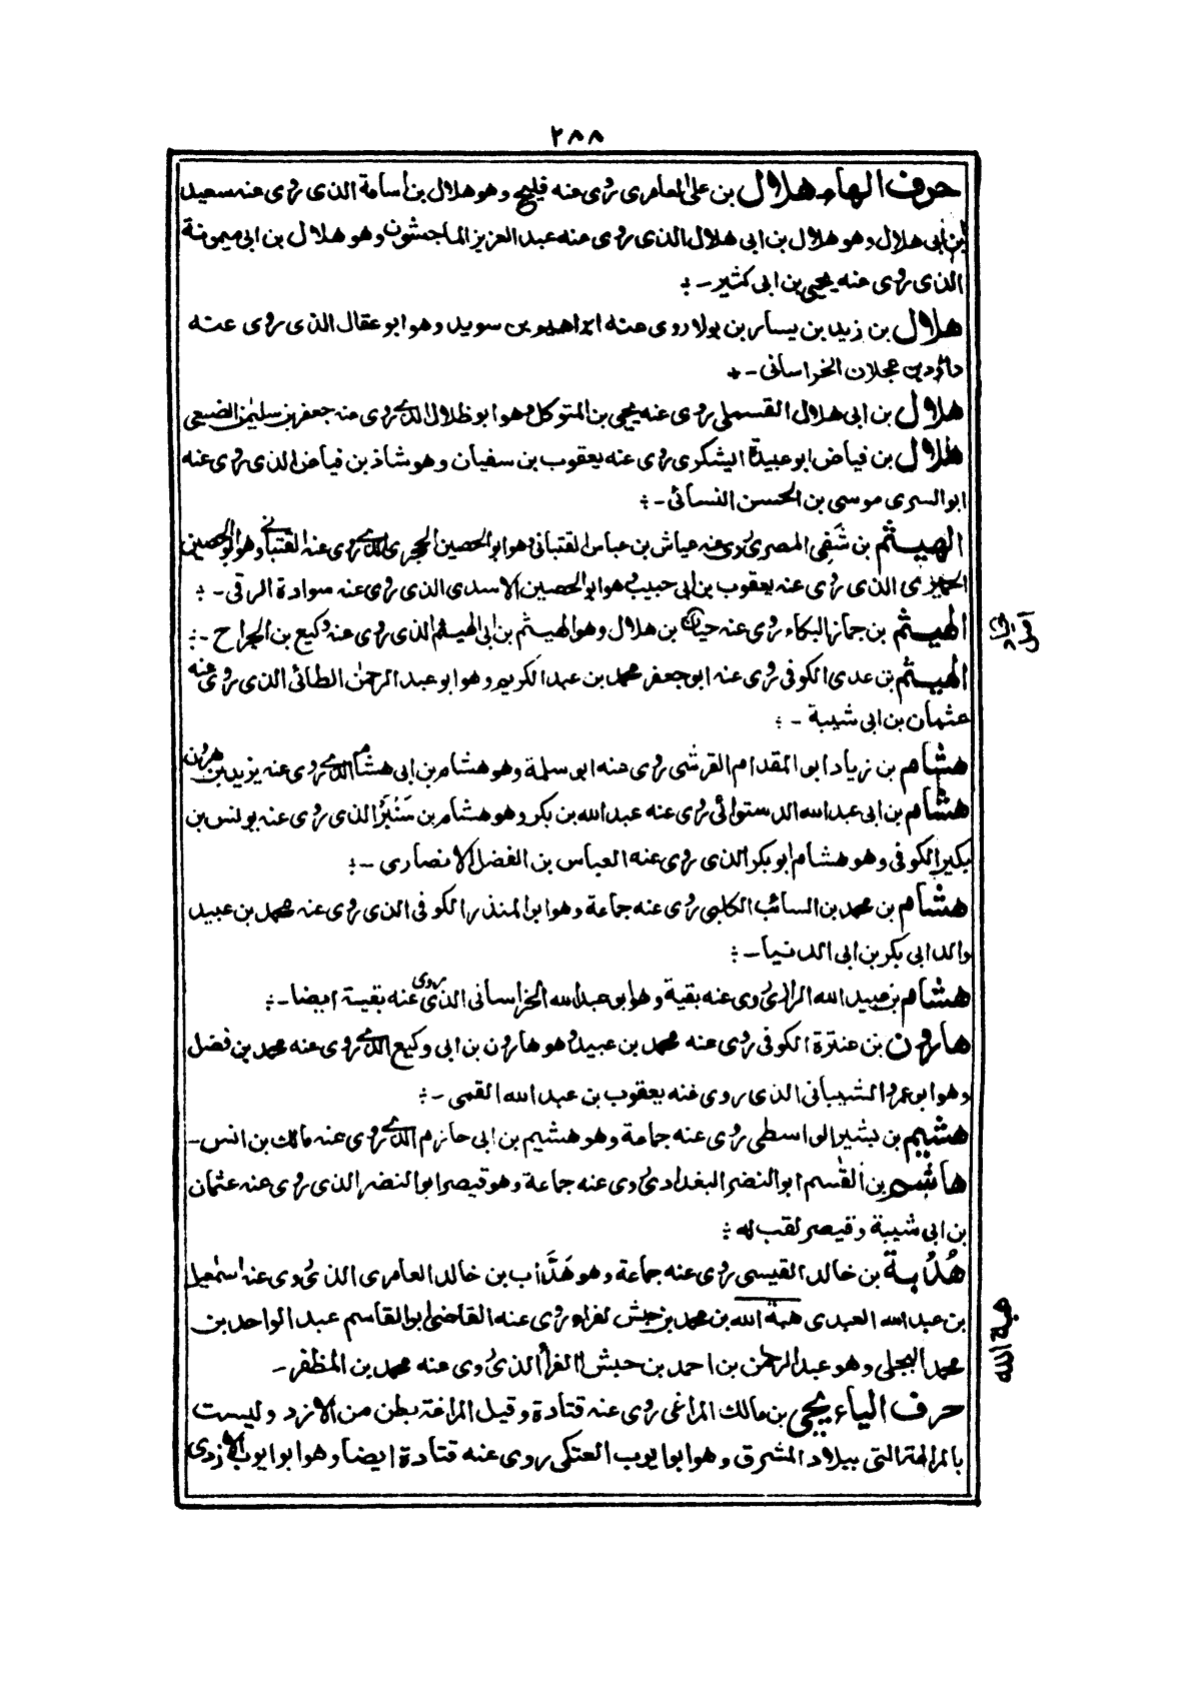 ٢٨٨
حرف الهاء هلال بن علی العامری روی عنه فلیح وهو هلال بن اسامة الذی روی عنه سعید
ابن ابی هلال وهو هلال بن ابی هلال الذی روی عنه عبد العزیز الماجشون وهو هلال بن ابی میمونة
الذی روی عنه یحیی بن ابی کثیر -:
هلال بن زید بن یسار بن بولا روی عنه ابراهیم بن سوید وهو ابو عقال الذی روی عنه
داؤد بن عجلان الخراسانی -
هلال بن ابی هلال القسملی روی عنه یحیی بن المتوکل وهو ابو ظلال الذی روی عنه جعفر بن سلیمٰن الضبعی
هلال بن فیاض ابو عبیدة الیشکری روی عنه یعقوب بن سفیان وهو شاذ بن فیاض الذی روی عنه
ابو السری موسی بن الحسن النسائی -:
الهیثم بن شَفِی المصری روی عنه عیاش بن عباس القتبانی وهو ابو الحصین الحجری الذی روی عنه القتبانی وهو ابو الحصین
الحمیری الذی روی عنه یعقوب بن ابی حبیب وهو ابو الحصین الاسدی الذی روی عنه سوادة الرقی -:
الهیثم بن جماز البکاء روی عنه حیان بن هلال وهو الهیثم بن ابی الهیثم الذی روی عنه وکیع بن الجراح -:
الهیثم بن عدی الکوفی روی عنه ابو جعفر محمد بن عبد الکریم وهو ابو عبد الرحمٰن الطائی الذی روی عنه
عثمان بن ابی شیبة -:
هشام بن زیاد ابو المقدام القرشی روی عنه ابو سلمة وهو هشام بن ابی هشام الذی روی عنه یزید بن هرون
هشام بن ابی عبد الله الدستوائی روی عنه عبد الله بن بکر وهو هشام بن سَنْبَرْ الذی روی عنه یونس بن
بکیر الکوفی وهو هشام ابو بکر الذی روی عنه العباس بن الفضل الانصاری -:
هشام بن محمد بن السائب الکلبی روی عنه جماعة وهو ابو المنذر الکوفی الذی روی عنه محمد بن عبید
والد ابی بکر بن ابی الدنیا -:
هشام بن عبید الله الرازی روی عنه بقیة وهو ابو عبد الله الخراسانی الذی روی عنه بقیة ایضا -:
هارون بن عنترة الکوفی روی عنه محمد بن عبید وهو هارون بن ابی وکیع الذی روی عنه محمد بن فضل
وهو ابو عمرو الشیبانی الذی روی عنه یعقوب بن عبد الله القمی -:
هشیم بن بشیر الواسطی روی عنه جماعة وهو هشیم بن ابی حازم الذی روی عنه مالک بن انس -
هاشم بن القٰسم ابو النضر البغدادی روی عنه جماعة وهو قیصر ابو النضر الذی روی عنه عثمان
بن ابی شیبة وقیصر لقب له :
هُدْبة بن خالد القیسی روی عنه جماعة وهو هَدَّاب بن خالد العامری الذی روی عنه اسمٰعیل
بن عبد الله العبدی هبة الله بن محمد بن حبش الفراء روی عنه القاضی ابو القاسم عبد الواحد بن
محمد البجلی وهو عبد الرحمٰن بن احمد بن حبش الفرا الذی روی عنه محمد بن المظفر -
هبة الله
حرف الیاء یحیی بن مالک المراغی روی عنه قتادة وقیل المراغة بطن من الازد ولیست
بالمراغة التی ببلاد المشرق وهو ابو ایوب العتکی روی عنه قتادة ایضا وهو ابو ایوب الازدی